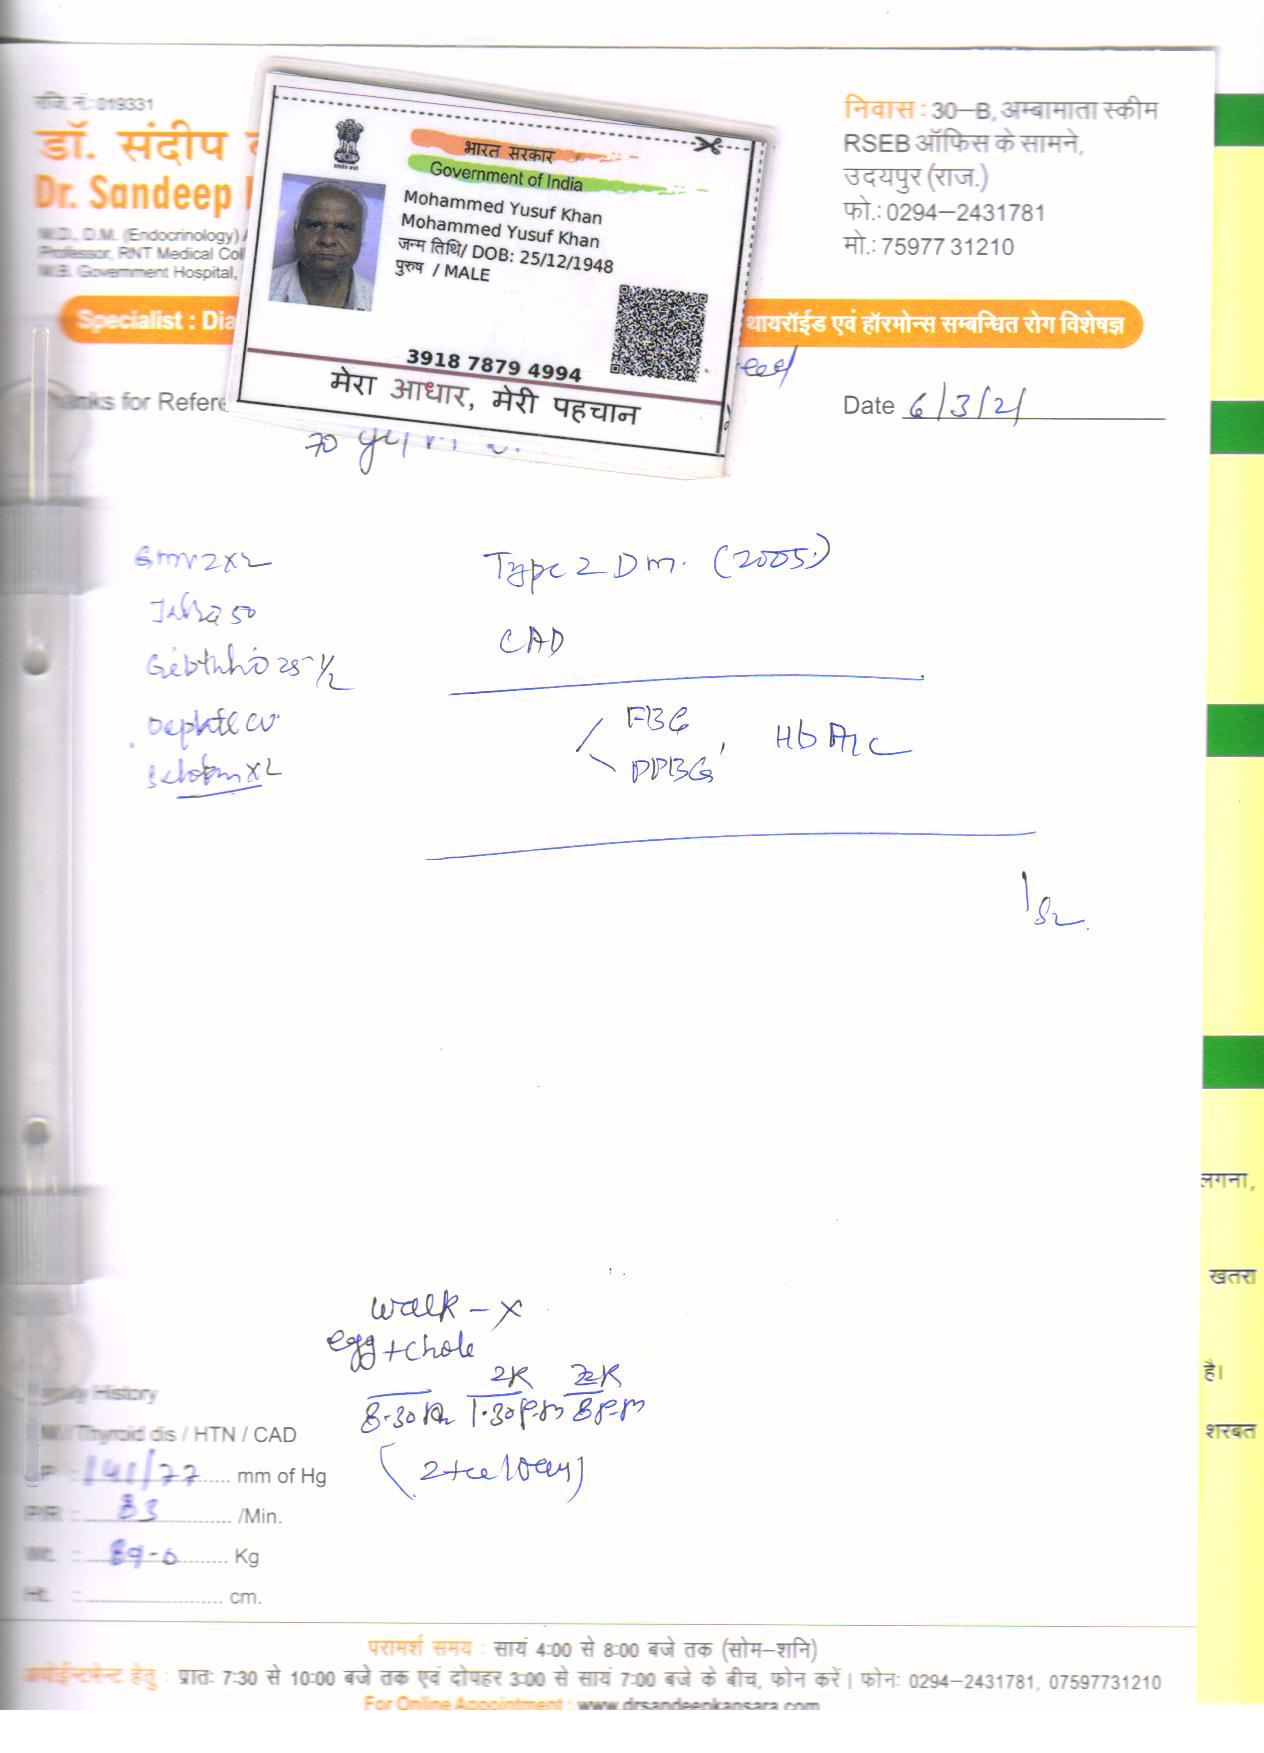 रजि. नं.: 019331
डॉ. संदीप
Dr. Sandeep
M.D., D.M. (Endocrinology)
Professor, RNT Medical Col
M.B. Government Hospital,
निवास : 30–B, अम्बामाता स्कीम
RSEB ऑफिस के सामने,
उदयपुर (राज.)
फो.: 0294–2431781
मो.: 75977 31210
भारत सरकार
Government of India
Mohammed Yusuf Khan
Mohammed Yusuf Khan
जन्म तिथि/ DOB: 25/12/1948
पुरुष / MALE
3918 7879 4994
मेरा आधार, मेरी पहचान
Specialist : Dia
थायरॉईड एवं हॉरमोन्स सम्बन्धित रोग विशेषज्ञ
anks for Refere
Date 6/3/21
70
Type 2 Dm. (2005)
50
CAD
25 1/2
FBG
PPBG, HbA1c
x2
walk – x
egg + chole
2R 2R
8.30 1.30 P.m 8 P.m
History
Thyroid dis / HTN / CAD
P : 141/77 mm of Hg
P/R : 83 /Min.
Wt. : 89.0 Kg
Ht. : cm.
लगना,
खतरा
है।
शरबत
परामर्श समय : सायं 4:00 से 8:00 बजे तक (सोम–शनि)
अपोईन्टमेन्ट हेतु : प्रातः 7:30 से 10:00 बजे तक एवं दोपहर 3:00 से सायं 7:00 बजे के बीच, फोन करें। फोनः 0294–2431781, 07597731210
For Online Appointment : www.drsandeepkansara.com